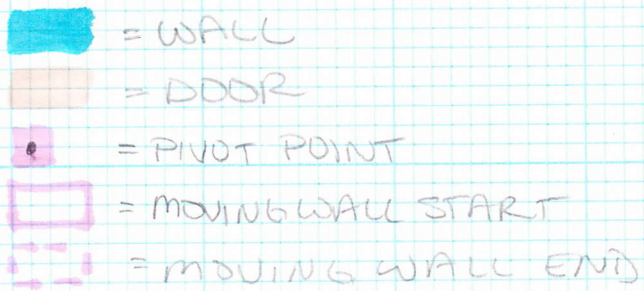 = WALL
= DOOR
= PIVOT POINT
= MOVING WALL START
= MOVING WALL END